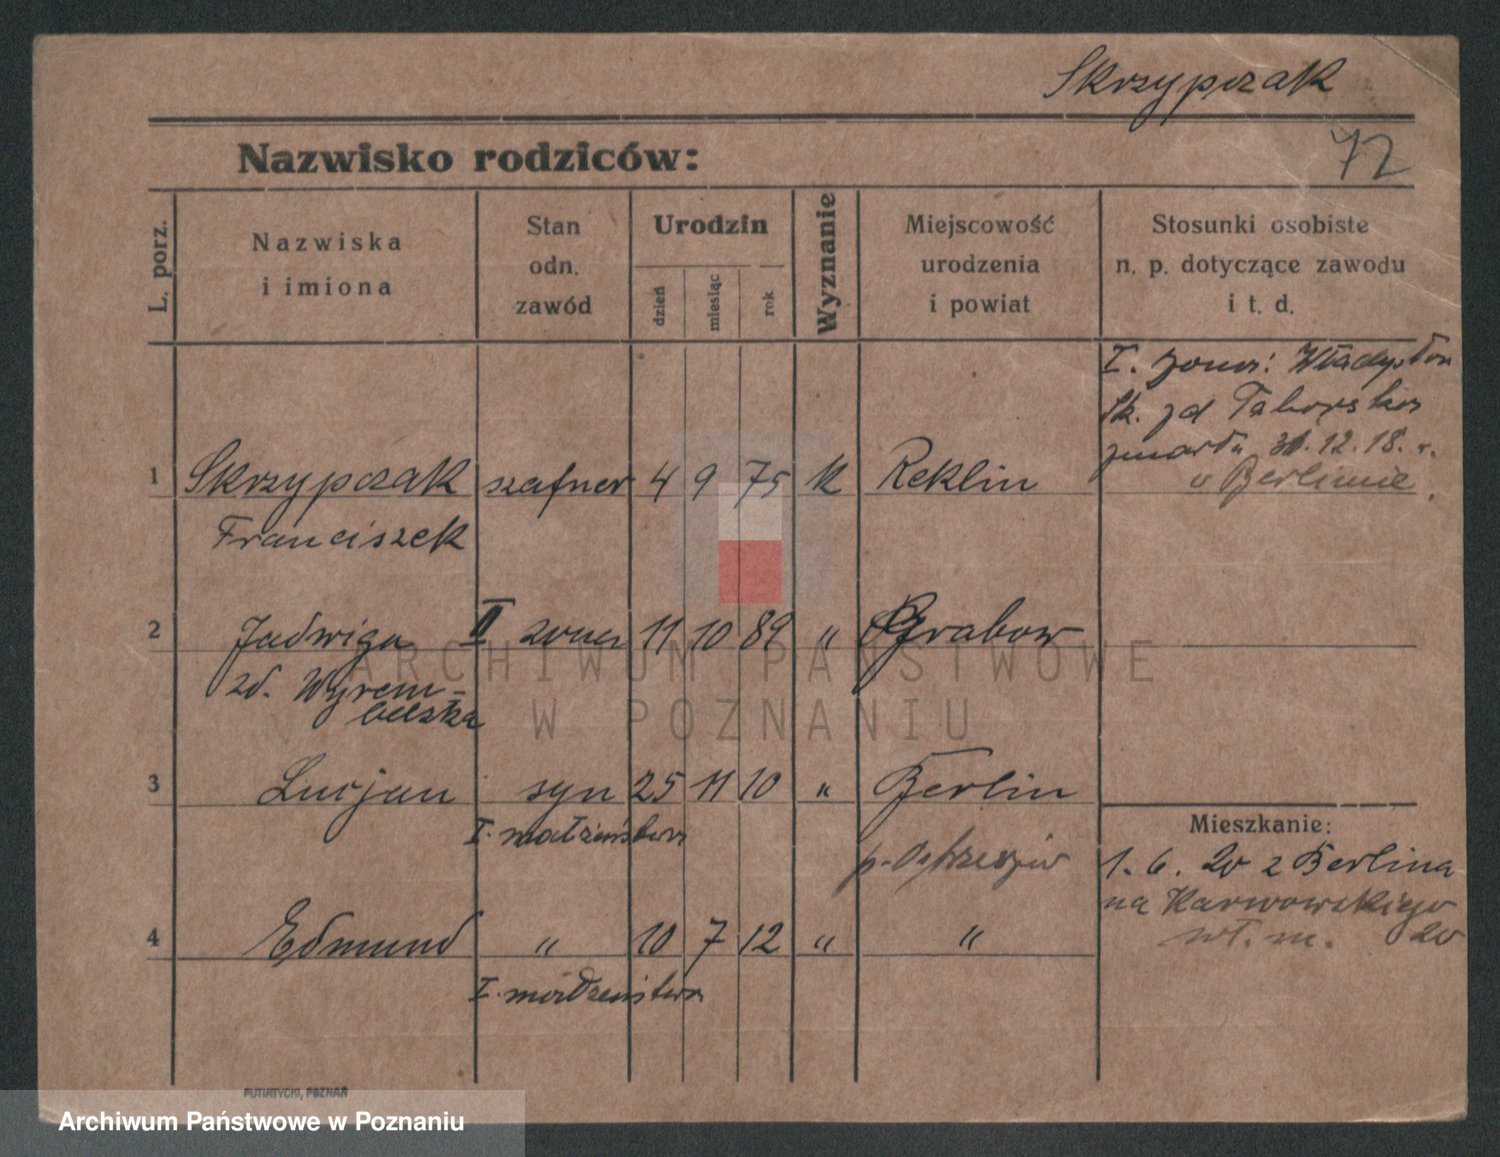 Skrzypczak
72
Nazwisko rodziców:
L. porz.
Nazwiska
i imiona
Stan
odn.
zawód
Urodzin
dzień
miesiąc
rok
Wyznanie
Miejscowość
urodzenia
i powiat
Stosunki osobiste
n. p. dotyczące zawodu
i t. d.
I. żona: Władysława
Sk. zd Taborska
zmarła 31.12.18. r.
w Berlinie.
1 Skrzypczak szafner 4 9 75 k Reklin
Franciszek
2 Jadwiga II żona 11 10 89 „ Grabow
zd. Wyrem-
belska
3 Lucjan syn 25 11 10 „ Berlin
I. małżeństwa
p.
4 Edmund „ 10 7 12 „ „
I. małżeństwa
Mieszkanie:
1. 6. 20 z Berlina
na Karwowskiego
wł. m. 20
PUTIATYCKI, POZNAŃ
ARCHIWUM PAŃSTWOWE
W POZNANIU
Archiwum Państwowe w Poznaniu